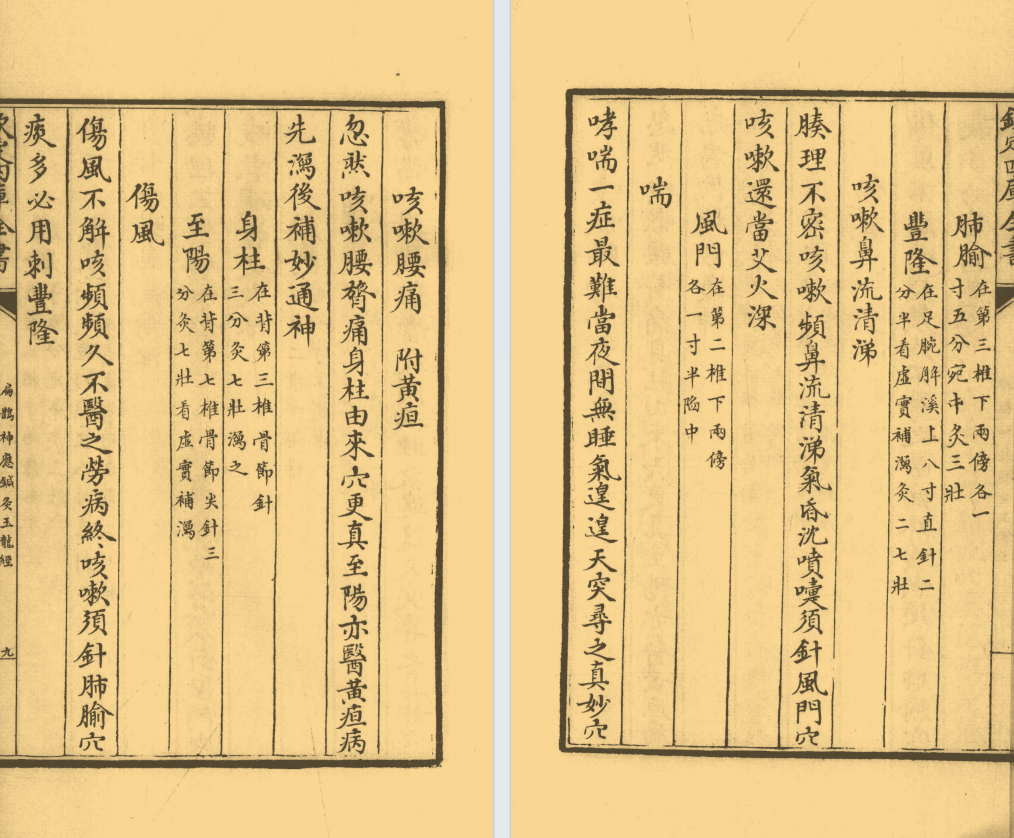 咳嗽腰痛　附黃疸
忽然咳嗽腰膂痛身柱由來穴更真至陽亦醫黃疸病
先瀉後補妙通神
身柱
在背第三椎骨節針
三分灸七壯瀉之
至陽
在背第七椎骨節尖針三
分灸七壯看虛實補瀉
傷風
傷風不解咳頻頻久不醫之勞病終咳嗽須針肺腧穴
痰多必用刺豐隆
欽定四庫全書
扁鵲神應鍼灸玉龍經
九
欽定四庫全書
肺腧
在第三椎下兩傍各一
寸五分宛中灸三壯
豐隆
在足腕解溪上八寸直針二
分半看虛實補瀉灸二七壯
咳嗽鼻流清涕
腠理不密咳嗽頻鼻流清涕氣昏沈噴嚏須針風門穴
咳嗽還當艾火深
風門
在第二椎下兩傍
各一寸半陷中
喘
哮喘一症最難當夜間無睡氣遑遑天突尋之真妙穴